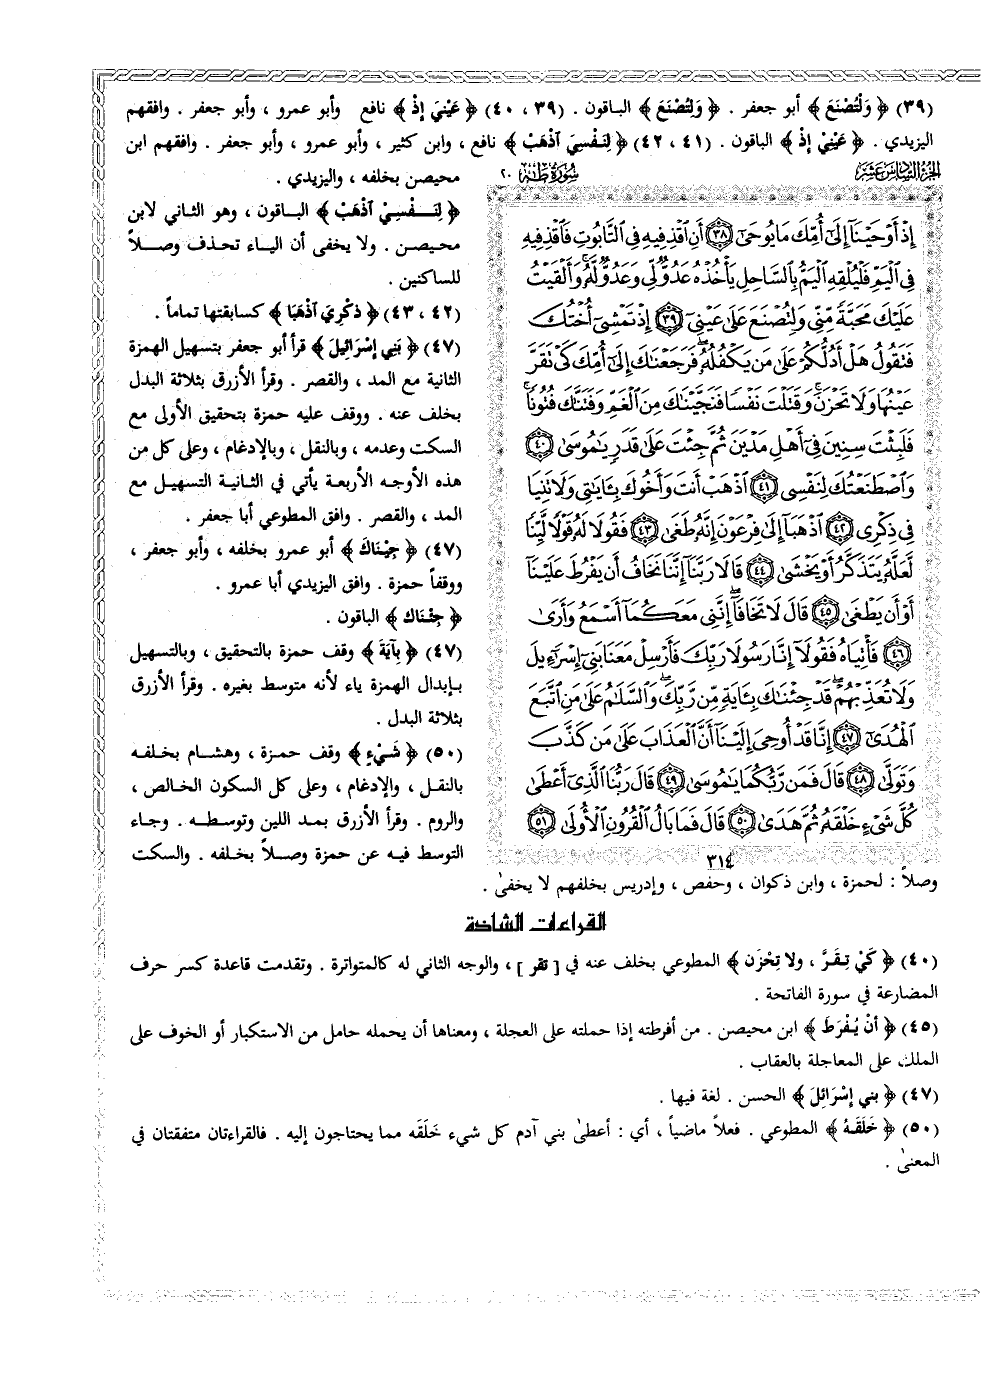 (٣٩) ﴿ وَلْتُصْنَعْ ﴾ أبو جعفر . ﴿ وَلِتُصْنَعَ ﴾ الباقون . (٣٩ ، ٤٠) ﴿ عَيْنِيَ إِذْ ﴾ نافع وأبو عمرو ، وأبو جعفر . وافقهم
اليزيدي . ﴿ عَيْنِيْ إِذْ ﴾ الباقون . (٤١ ، ٤٢) ﴿ لِنَفْسِيَ اَذْهَبْ ﴾ نافع ، وابن كثير ، وأبو عمرو ، وأبو جعفر . وافقهم ابن
محيصن بخلفه ، واليزيدي .
﴿ لِنَـفْسِيْ اَذْهَبْ ﴾ البـاقون ، وهو الثاني لابن
محيـصن . ولا يخفى أن اليـاء تحـذف وصـلاً
للساكنين .
(٤٢ ، ٤٣) ﴿ ذِكْرِيَ اَذْهَبَا ﴾ كسابقتها تماماً .
(٤٧) ﴿ بَنِي إِسْرَائِيلَ ﴾ قرأ أبو جعفر بتسهيل الهمزة
الثانية مع المد ، والقصر . وقرأ الأزرق بثلاثة البدل
بخلف عنه . ووقف عليه حمزة بتحقيق الأولى مع
السكت وعدمه ، وبالنقل ، وبالإدغام ، وعلى كل من
هذه الأوجـه الأربعـة يأتي في الثانيـة التسهيل مع
المد ، والقصر . وافق المطوعي أبا جعفر .
(٤٧) ﴿ جِيْنَاكَ ﴾ أبو عمرو بخلفه ، وأبو جعفر ،
ووقفاً حمزة . وافق اليزيدي أبا عمرو .
﴿ جِئْنَاكَ ﴾ الباقون .
(٤٧) ﴿ بِآيَةٍ ﴾ وقف حمزة بالتحقيق ، وبالتسهيل
بـإبدال الهمزة ياء لأنه متوسط بغيره . وقرأ الأزرق
بثلاثة البدل .
(٥٠) ﴿ شَيْءٍ ﴾ وقف حمـزة ، وهشـام بخـلفه
بالنقل ، والإدغام ، وعلى كل السكون الخـالص ،
والروم . وقرأ الأزرق بمـد اللين وتوسطـه . وجـاء
التوسط فيـه عن حمزة وصـلاً بخلفه . والسكت
الجزء السادس عشر سورة طه ٢٠
إِذْ أَوْحَيْنَآ إِلَىٰٓ أُمِّكَ مَا يُوحَىٰٓ ٣٨ أَنِ ٱقْذِفِيهِ فِى ٱلتَّابُوتِ فَٱقْذِفِيهِ
فِى ٱلْيَمِّ فَلْيُلْقِهِ ٱلْيَمُّ بِٱلسَّاحِلِ يَأْخُذْهُ عَدُوٌّ لِّى وَعَدُوٌّ لَّهُۥ ۚ وَأَلْقَيْتُ
عَلَيْكَ مَحَبَّةً مِّنِّى وَلِتُصْنَعَ عَلَىٰ عَيْنِىٓ ٣٩ إِذْ تَمْشِىٓ أُخْتُكَ
فَتَقُولُ هَلْ أَدُلُّكُمْ عَلَىٰ مَن يَكْفُلُهُۥ ۖ فَرَجَعْنَٰكَ إِلَىٰٓ أُمِّكَ كَىْ تَقَرَّ
عَيْنُهَا وَلَا تَحْزَنَ ۚ وَقَتَلْتَ نَفْسًا فَنَجَّيْنَٰكَ مِنَ ٱلْغَمِّ وَفَتَنَّٰكَ فُتُونًا ۚ
فَلَبِثْتَ سِنِينَ فِىٓ أَهْلِ مَدْيَنَ ثُمَّ جِئْتَ عَلَىٰ قَدَرٍ يَٰمُوسَىٰ ٤٠
وَٱصْطَنَعْتُكَ لِنَفْسِى ٤١ ٱذْهَبْ أَنتَ وَأَخُوكَ بِـَٔايَٰتِى وَلَا تَنِيَا
فِى ذِكْرِى ٤٢ ٱذْهَبَآ إِلَىٰ فِرْعَوْنَ إِنَّهُۥ طَغَىٰ ٤٣ فَقُولَا لَهُۥ قَوْلًا لَّيِّنًا
لَّعَلَّهُۥ يَتَذَكَّرُ أَوْ يَخْشَىٰ ٤٤ قَالَا رَبَّنَآ إِنَّنَا نَخَافُ أَن يَفْرُطَ عَلَيْنَآ
أَوْ أَن يَطْغَىٰ ٤٥ قَالَ لَا تَخَافَآ ۖ إِنَّنِى مَعَكُمَآ أَسْمَعُ وَأَرَىٰ
٤٦ فَأْتِيَاهُ فَقُولَآ إِنَّا رَسُولَا رَبِّكَ فَأَرْسِلْ مَعَنَا بَنِىٓ إِسْرَٰٓءِيلَ
وَلَا تُعَذِّبْهُمْ ۖ قَدْ جِئْنَٰكَ بِـَٔايَةٍ مِّن رَّبِّكَ ۖ وَٱلسَّلَٰمُ عَلَىٰ مَنِ ٱتَّبَعَ
ٱلْهُدَىٰٓ ٤٧ إِنَّا قَدْ أُوحِىَ إِلَيْنَآ أَنَّ ٱلْعَذَابَ عَلَىٰ مَن كَذَّبَ
وَتَوَلَّىٰ ٤٨ قَالَ فَمَن رَّبُّكُمَا يَٰمُوسَىٰ ٤٩ قَالَ رَبُّنَا ٱلَّذِىٓ أَعْطَىٰ
كُلَّ شَىْءٍ خَلْقَهُۥ ثُمَّ هَدَىٰ ٥٠ قَالَ فَمَا بَالُ ٱلْقُرُونِ ٱلْأُولَىٰ ٥١
٣١٤
وصلاً : لحمزة ، وابن ذكوان ، وحفص ، وإدريس بخلفهم لا يخفىٰ .
القراءات الشاذة
(٤٠) ﴿ كَيْ تِـقَـرَّ ، ولا تِحْزَن ﴾ المطوعي بخلف عنه في [ تقر ] ، والوجه الثاني له كالمتواترة . وتقدمت قاعدة كسر حرف
المضارعة في سورة الفاتحة .
(٤٥) ﴿ أَنْ يُـفْـرَطَ ﴾ ابن محيصن . من أفرطته إذا حملته على العجلة ، ومعناها أن يحمله حامل من الاستكبار أو الخوف على
الملك على المعاجلة بالعقاب .
(٤٧) ﴿ بني إِسْرَائِلَ ﴾ الحسن . لغة فيها .
(٥٠) ﴿ خَلَقَـهُ ﴾ المطوعي . فعلاً ماضياً ، أي : أعطىٰ بني آدم كل شيء خَلَقَه مما يحتاجون إليه . فالقراءتان متفقتان في
المعنىٰ .